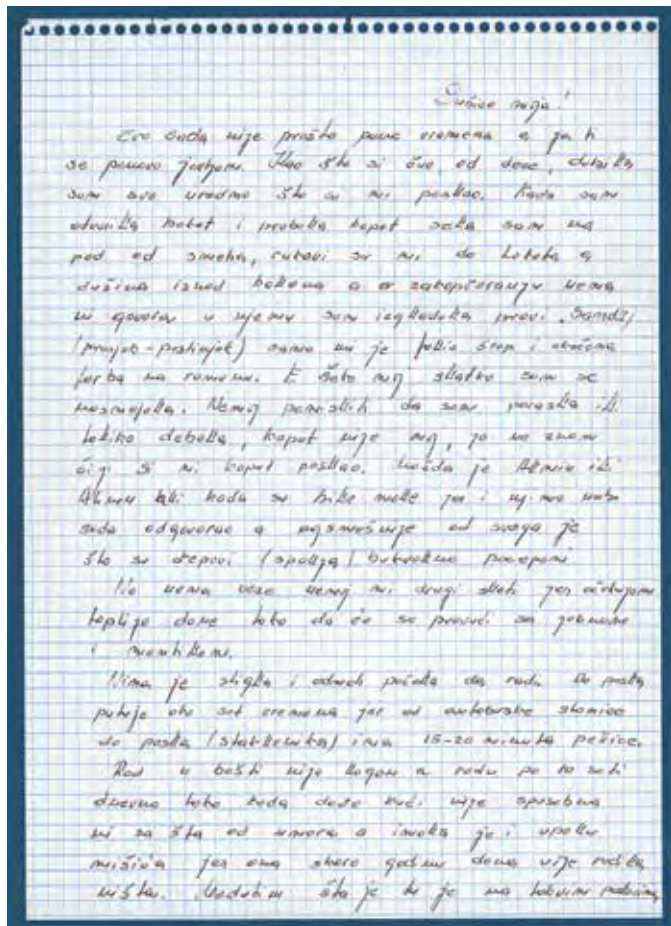 Dušice moja!
Evo sada nije prošlo puno vremena a ja ti
se ponovo javljam. Kao što si čuo, od dece, dobila
sam sve uredno što si mi poslao. Kada sam
otvorila paket i probala kaput sela sam na
pod od smeha, rukavi su mi do lakata a
dužina iznad kolena a o zakopčavanju nema
ni govora u njemu sam izgledala pravi
samo mi je falio i
torba na ramenu. E moj slatko sam se
nasmejala. Nemoj pomisliti da sam porasla ili
toliko debela, kaput nije moj, ja ne znam
čiji si mi kaput poslao. Možda je ili
kada su bile male jer i njima nebi
sada odgovarao a najsmešnije od svega je
što su džepovi (spolja) bukvalno pocepani
No nema veze nemoj mi drugi slati jer očekujem
toplije dane tako da ću se provući sa jaknom
i mantilom.
je stigla i odmah počela da radi. Do posla
putuje oko sat vremena jer od autobuske stanice
do posla (staklenika) ima 15-20 minuta pešice.
Rad u bašti nije lagan a rade po 10 sati
dnevno tako kada dođe kući nije sposobna
ni za šta od umora a imala je i upalu
mišića jer ona skoro godinu dana nije radila
ništa. Međutim šta je tu je na takvim